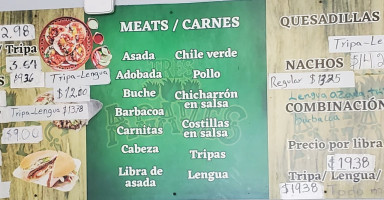 2.98
/ Tripa
3.64
Tripa-Lengua
$12.00
Tripa-Lengua $13.78
$9.00
MEATS / CARNES
Asada
Adobada
Buche
Barbacoa
Carnitas
Cabeza
Libra de
asada
Chile verde
Pollo
Chicharrón
en salsa
Costillas
en salsa
Tripas
Lengua
QUESADILLAS
Tripa-Le
NACHOS
Regular
COMBINACIÓN
Barbacoa
Precio por libra
$19.38
Tripa/Lengua/
$19.38